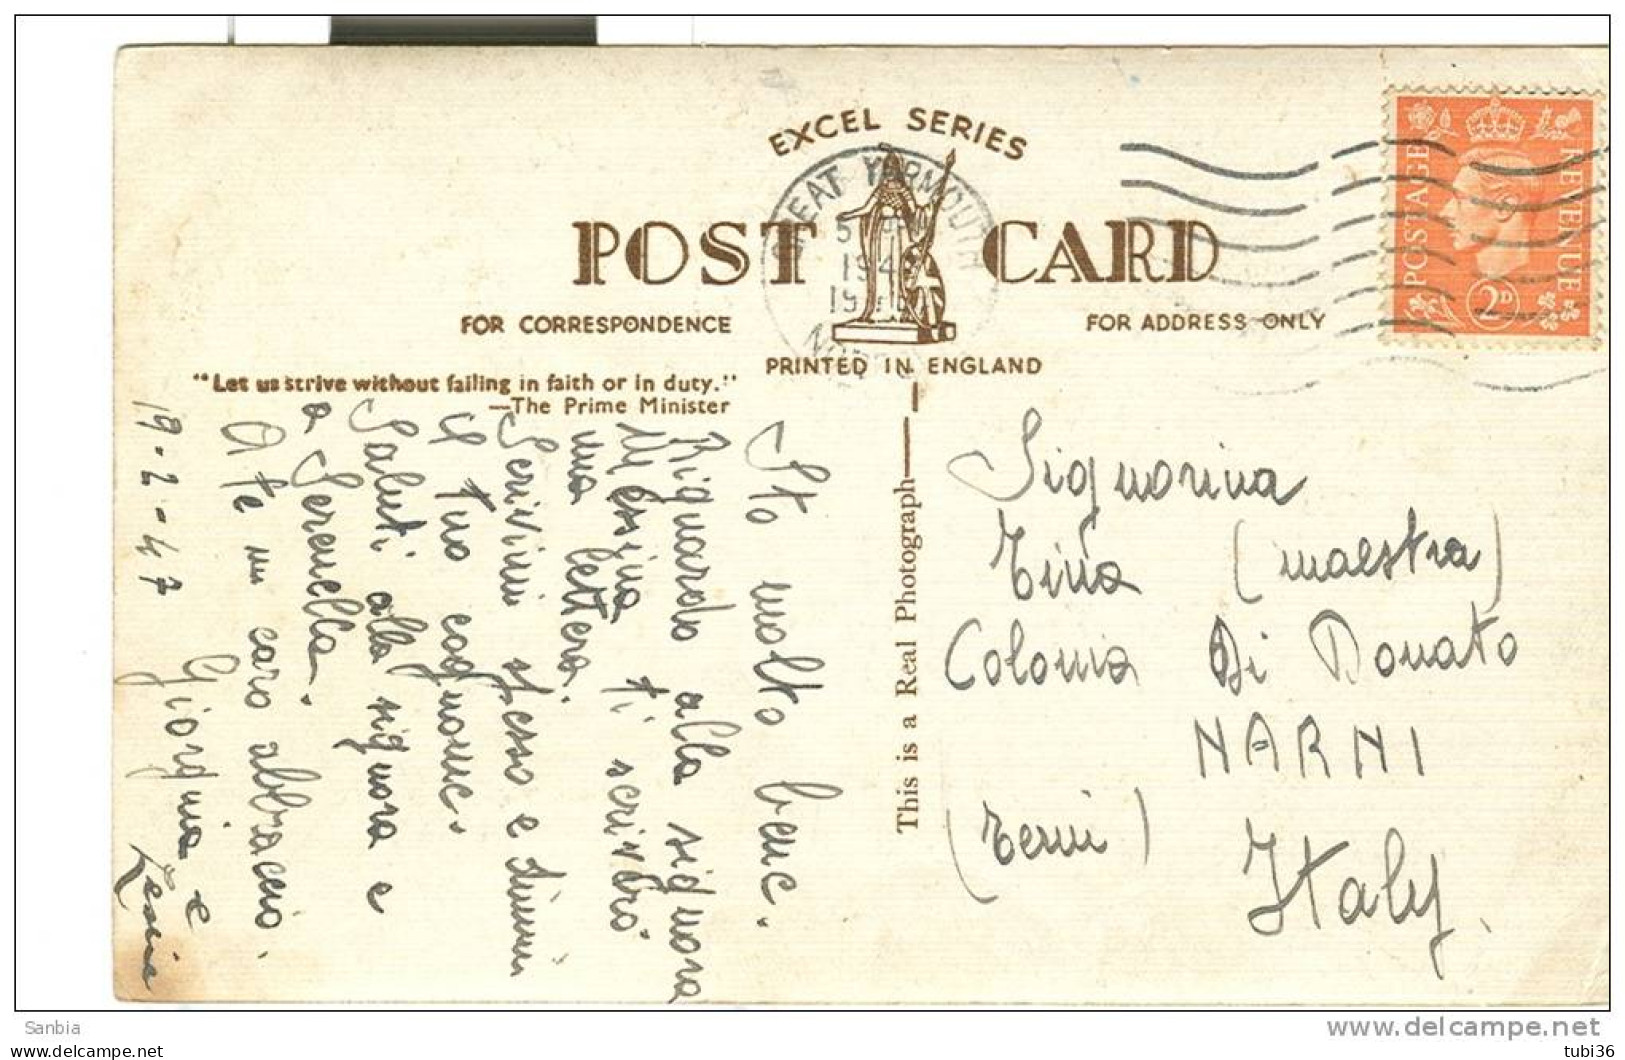 EXCEL SERIES
POST CARD
GREAT YARMOUTH
FOR CORRESPONDENCE
FOR ADDRESS ONLY
PRINTED IN ENGLAND
"Let us strive without failing in faith or in duty."
—The Prime Minister
This is a Real Photograph
POSTAGE
REVENUE
2D
Sto molto bene.
Riguardo alla signora
Messina ti scriverò
una lettera.
Scrivimi spesso e dimmi
il tuo cognome.
Saluti alla signora e
a Serenella.
A te un caro abbraccio.
Giorgina e
19-2-47
Signorina
Tina (maestra)
Colonia Di Donato
NARNI
(Terni)
Italy
Sanbia
www.delcampe.net
delcampe.net
tubi36